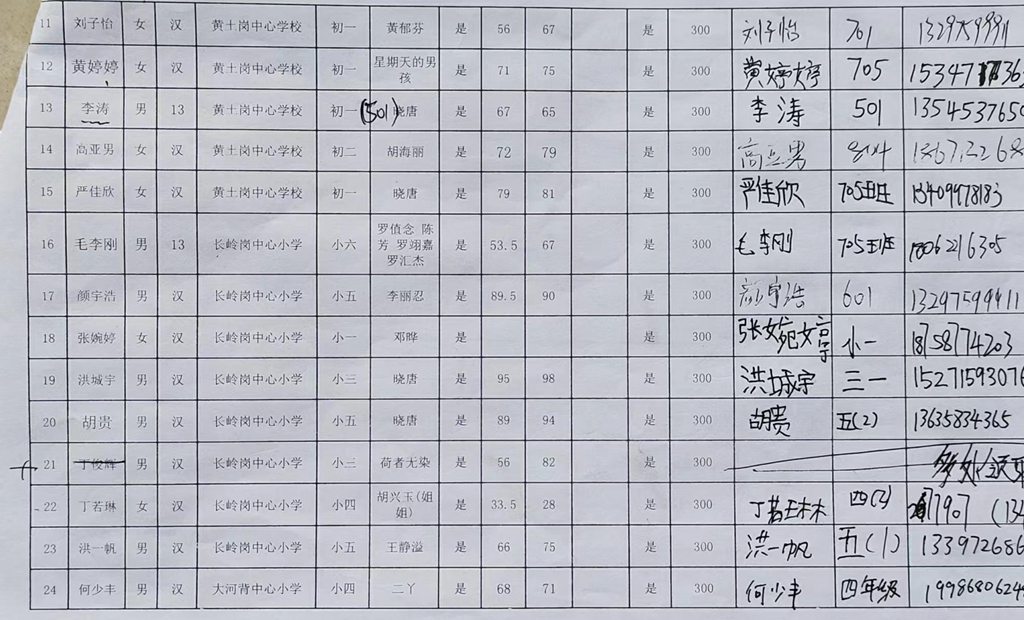 11 刘子怡 女 汉 黄土岗中心学校 初一 黄郁芬 是 56 67 是 300 刘子怡 701
12 黄婷婷 女 汉 黄土岗中心学校 初一 星期天的男孩 是 71 75 是 300 黄婷婷 705
13 李涛 男 13 黄土岗中心学校 初一 (501) 晓唐 是 67 65 是 300 李涛 501 1354537650
14 高亚男 女 汉 黄土岗中心学校 初二 胡海丽 是 72 79 是 300 高亚男
15 严佳欣 女 汉 黄土岗中心学校 初一 晓唐 是 79 81 是 300 严佳欣 705班 13409978183
16 毛李刚 男 13 长岭岗中心小学 小六 罗值念 陈芳 罗翊嘉 罗汇杰 是 53.5 67 是 300 毛李刚 705班
17 颜宇浩 男 汉 长岭岗中心小学 小五 李丽忍 是 89.5 90 是 300 颜宇浩 601 13297599911
18 张婉婷 女 汉 长岭岗中心小学 小一 邓晔 是 是 300 张婉婷 小一 18758774203
19 洪城宇 男 汉 长岭岗中心小学 小三 晓唐 是 95 98 是 300 洪城宇 三一 15271593076
20 胡贵 男 汉 长岭岗中心小学 小五 晓唐 是 89 94 是 300 胡贵 五(2) 13635834365
21 丁俊辉 男 汉 长岭岗中心小学 小三 荷者无染 是 56 82 是 300
22 丁若琳 女 汉 长岭岗中心小学 小四 胡兴玉(姐姐) 是 33.5 28 是 300 丁若琳
23 洪一帆 男 汉 长岭岗中心小学 小五 王静溢 是 66 75 是 300 洪一帆 五(1) 133972686
24 何少丰 男 汉 大河背中心小学 小四 二丫 是 68 71 是 300 何少丰 四年级 1998680624